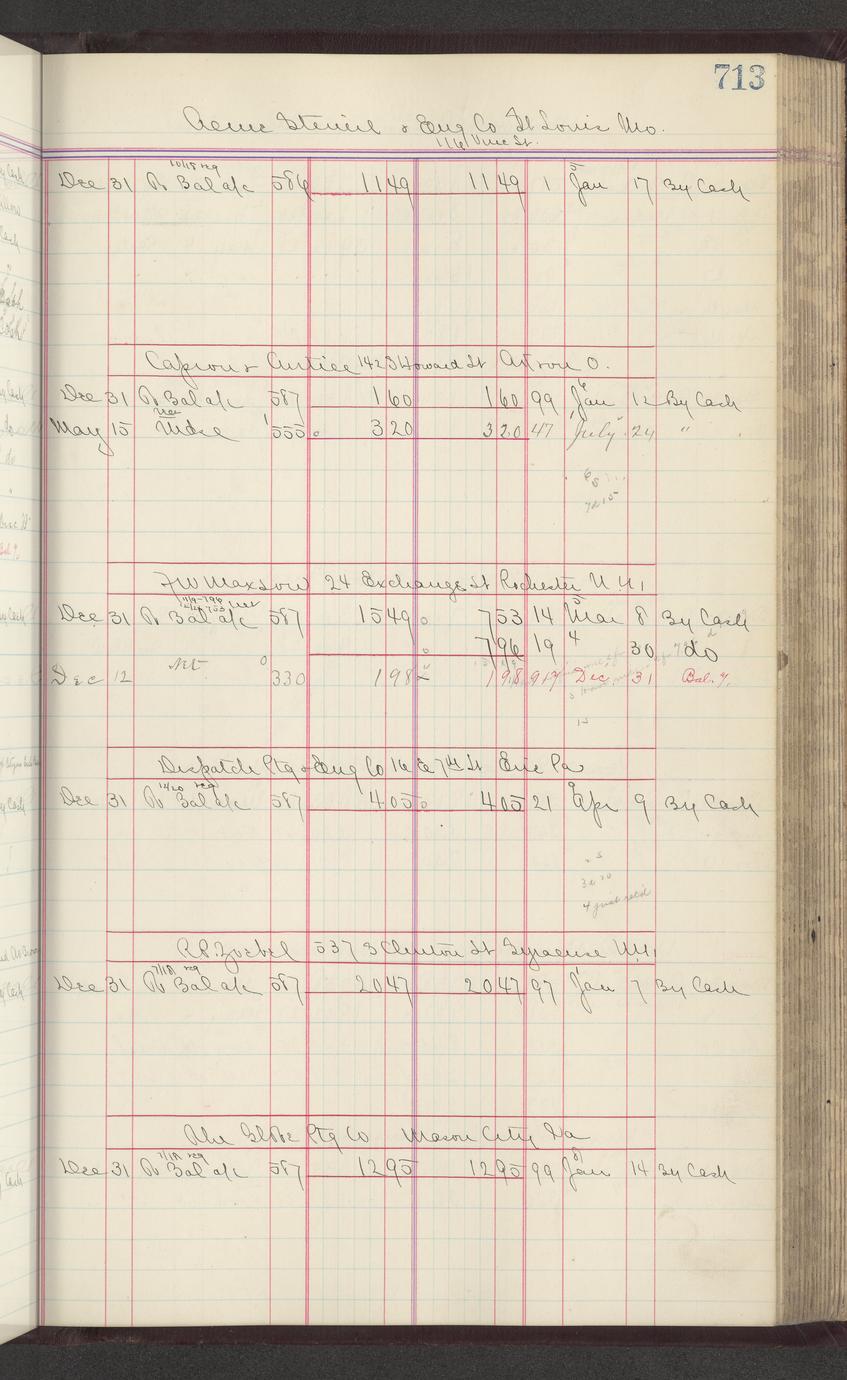 713
Acme Stencil & Eng Co St Louis Mo.
1161 Vine St.
10/15 reg 5
Dec 31 To Bal a/c 586 1149 1149 1 Jan 17 By Cash
142 S Howard St Akron O.
6
Dec 31 To Bal a/c 587 160 160 99 Jan 12 By Cash
May 15 Mdse 555 320 320 47 July 24 "
F W Maxson 24 Exchange St Rochester N.Y.
5
Dec 31 To Bal a/c 587 1549 753 14 Mar 8 By Cash
796 19 4 30 do
Dec 12 Net 330 198 198 917 Dec 31 Bal.
Dispatch Ptg & Eng Co 16 E 7th St Erie Pa
12/20 reg 9
Dec 31 To Bal a/c 587 405 405 21 Apr 9 By Cash
537 S Clinton St Syracuse N.Y.
7/18 reg
Dec 31 To Bal a/c 587 2047 2047 97 Jan 7 By Cash
The Globe Ptg Co Mason City Ia
7/18 reg
Dec 31 To Bal a/c 587 1295 1295 99 Jan 14 By Cash